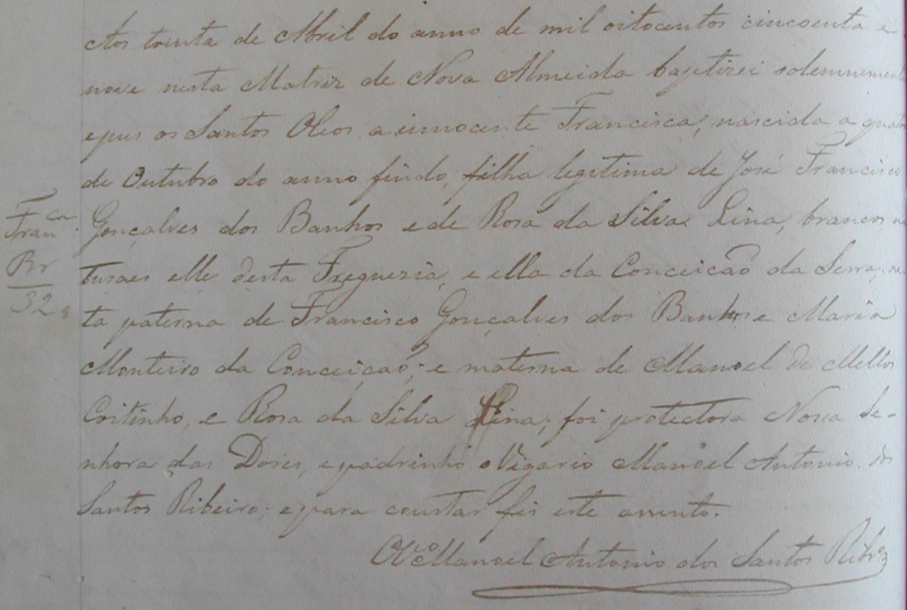 Aos trinta de Abril do anno de mil oitocentos cincoenta e
nove nesta Matriz de Nova Almeida baptizei solemnemente
e pus os Santos Oleos a innocente Francisca, nascida a quatro
de Outubro do anno findo, filha legitima de José Francisco
Gonçalves dos Banhos e de Rosa da Silva Lina, brancos na
turaes elle desta Freguezia, e ella da Conceicaõ da Serra, ne
ta paterna de Francisco Gonçalves dos Banhos e Maria
Monteiro da Conceiçaõ; e materna de Manoel de Mello
Coitinho, e Rosa da Silva Lina; foi protectora Nossa Se-
nhora das Dores, e padrinho o Vigario Manoel Antonio dos
Santos Ribeiro; e para constar fis este assento.
O Vº Manoel Antonio dos Santos Ribrº
Francª
Br
32